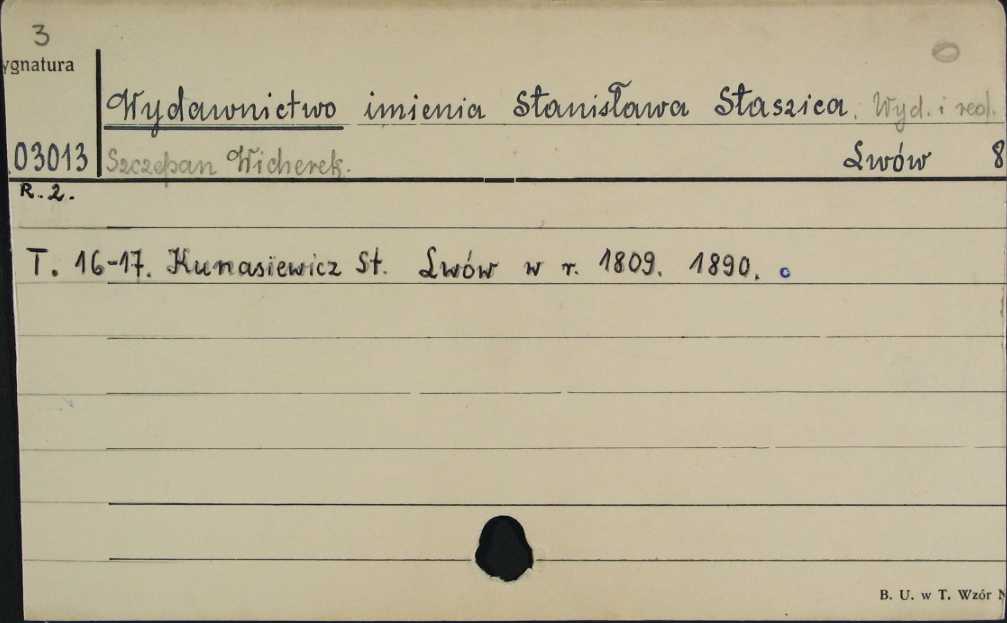 3
ygnatura
Wydawnictwo imienia Stanisława Staszica. Wyd. i red.
03013 Szczepan Wicherek. Lwów 8
R. 2.
T. 16-17. Kunasiewicz St. Lwów w r. 1809. 1890.
B. U. w T. Wzór N